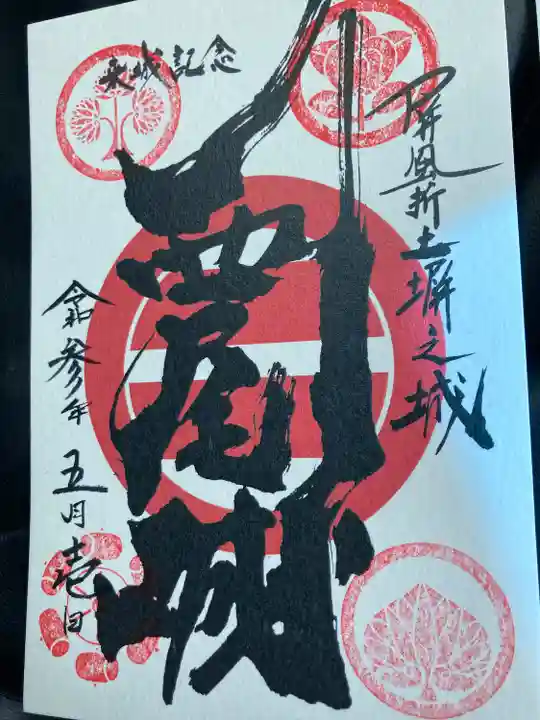 屏風折土塀之城
来城記念
西尾城
令和参年 五月壱日